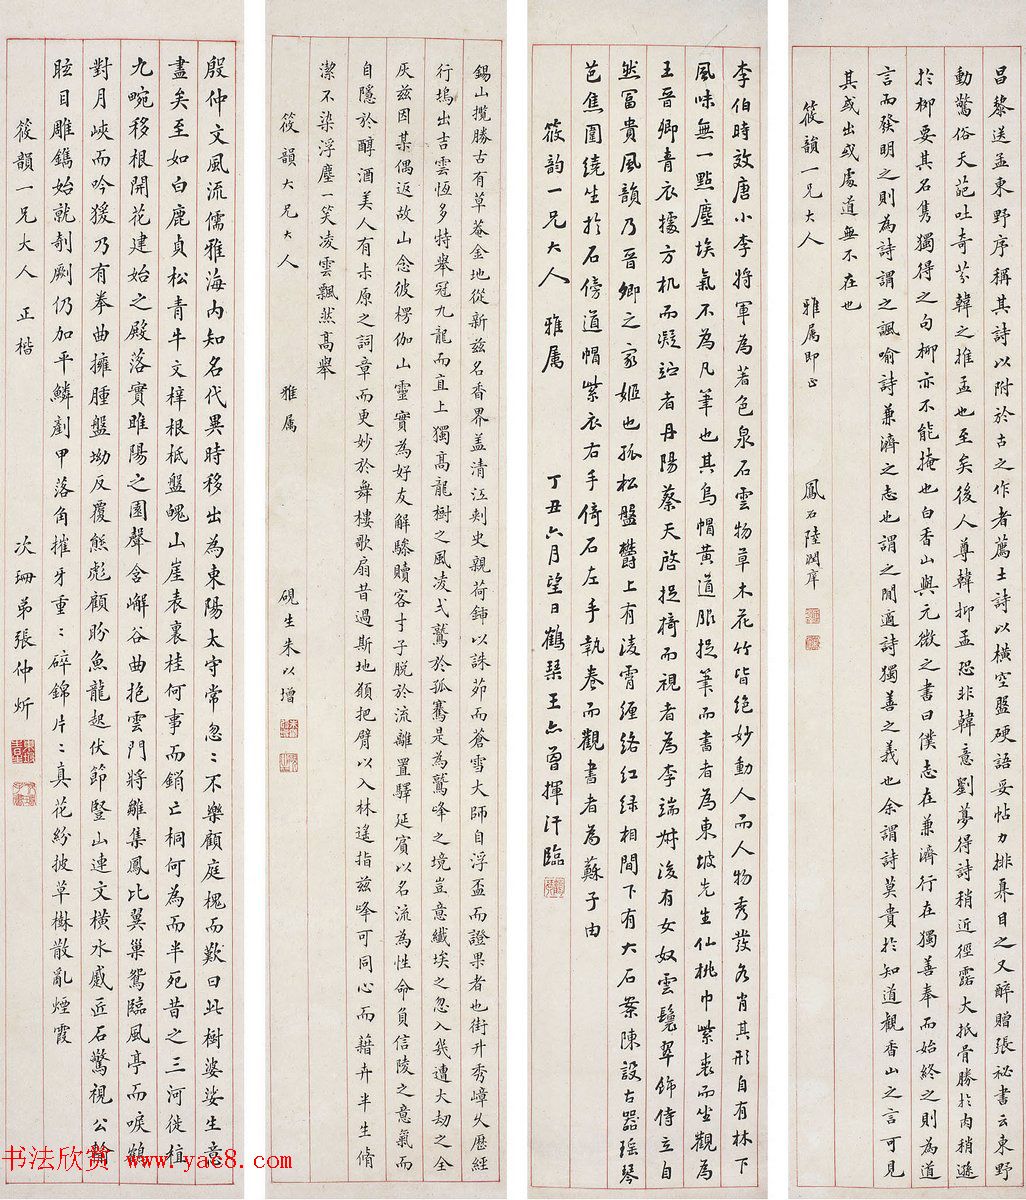 昌黎送孟東野序稱其詩以附於古之作者薦士詩以橫空盤硬語妥帖力排奡目之又醉贈張祕書云東野
動驚俗天葩吐奇芬韓之推孟也至矣後人尊韓抑孟恐非韓意劉夢得詩稍近徑露大抵骨勝於肉稍遜
於柳要其名雋獨得之句柳亦不能掩也白香山與元微之書曰僕志在兼濟行在獨善奉而始終之則為道
言而發明之則為詩謂之諷喻詩兼濟之志也謂之閒適詩獨善之義也余謂詩莫貴於知道觀香山之言可見
其或出或處道無不在也
筱韻一兄大人 雅属即正 鳳石陸潤庠
李伯時效唐小李將軍為著色泉石雲物草木花竹皆絕妙動人而人物秀發各肖其形自有林下
風味無一點塵埃氣不為凡筆也其烏帽黃道服捉筆而書者為東坡先生仙桃巾紫裘而坐觀為
王晉卿青衣據方机而凝竚者丹陽蔡天啓捉椅而視者為李端叔後有女奴雲鬟翠飾侍立自
然富貴風韻乃晉卿之家姬也孤松盤鬱上有淩霄纏絡紅绿相間下有大石案陳設古器瑤琴
芭焦圍繞坐於石傍道帽紫衣右手倚石左手執卷而觀書者為蘇子由
筱韵一兄大人 雅属 丁丑六月望日鶴琹王㐫曾揮汗臨
錫山攬勝古有草菴金地從新茲名香界盖清江刾史親荷鍤以誅茆而蒼雪大師自浮盃而證果者也街升秀嶂久歷經
行塢出吉雲恆多特舉冠九龍而直上獨高龍樹之風凌弍鷲於孤騫是為鷲峰之境豈意纖埃之忽入㡬遭大刼之全
灰兹因某偶返故山念彼楞伽山靈實為好友解驂贖客才子脫於流離置驛延賓以名流為性命負信陵之意氣而
自隱於醇酒美人有未原之詞章而更妙於舞樓歌扇昔過斯地願把臂以入林遙指兹峰可同心而藉卉半生脩
潔不染浮塵一笑凌雲飄然高舉
筱韻大兄大人 雅属 硯生朱以增
殷仲文風流儒雅海內知名代異時移出為東陽太守常忽〻不樂顧庭槐而歎曰此樹婆娑生意
盡矣至如白鹿貞松青牛文梓根柢盤魄山崖表裏桂何事而銷亡桐何為而半死昔之三河徙植
九畹移根開花建始之殿落實睢陽之園聲含嶰谷曲抱雲門將雛集鳳比翼巢鴛臨風亭而唳鶴
對月峽而吟猨乃有拳曲擁腫盤坳反覆熊彪顧盼魚龍起伏節豎山連文橫水蹙匠石驚視公輸
眩目雕鐫始就剞劂仍加平鱗剷甲落角摧牙重〻碎錦片〻真花紛披草樹散亂煙霞
筱韻一兄大人 正楷 次珊弟張仲炘
书法欣赏 www.yac8.com